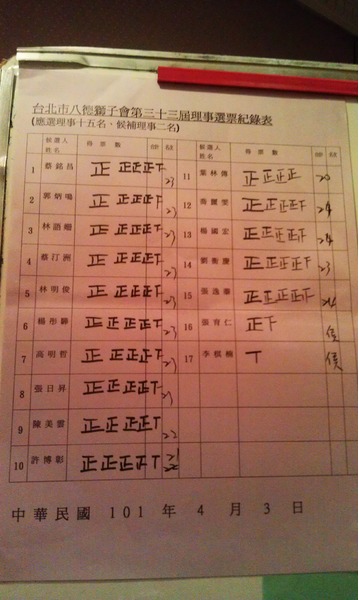 台北市八德獅子會第三十三屆理事選票紀錄表
(應選理事十五名、候補理事二名)
候選人姓名 得票數 總計 候選人姓名 得票數 總計
1 蔡銘昌 正正正正下 23 11 葉林傳 正正正正 20
2 郭炳鳴 正正正正下 23 12 正正正正 24
3 林語 正正正正下 23 13 楊國宏 正正正正 24
4 蔡汀洲 正正正正下 23 14 劉衡慶 正正正正下 23
5 林明俊 正正正正下 23 15 張逸 正正正正 24
6 楊彤 正正正正下 23 16 張育仁 正下
7 高明哲 正正正正下 23 17 李棋楠 丅
8 張日昇 正正正正下 23
9 陳美雲 正正正正丅 22
10 許博彰 正正正正丅
中華民國 101 年 4 月 3 日